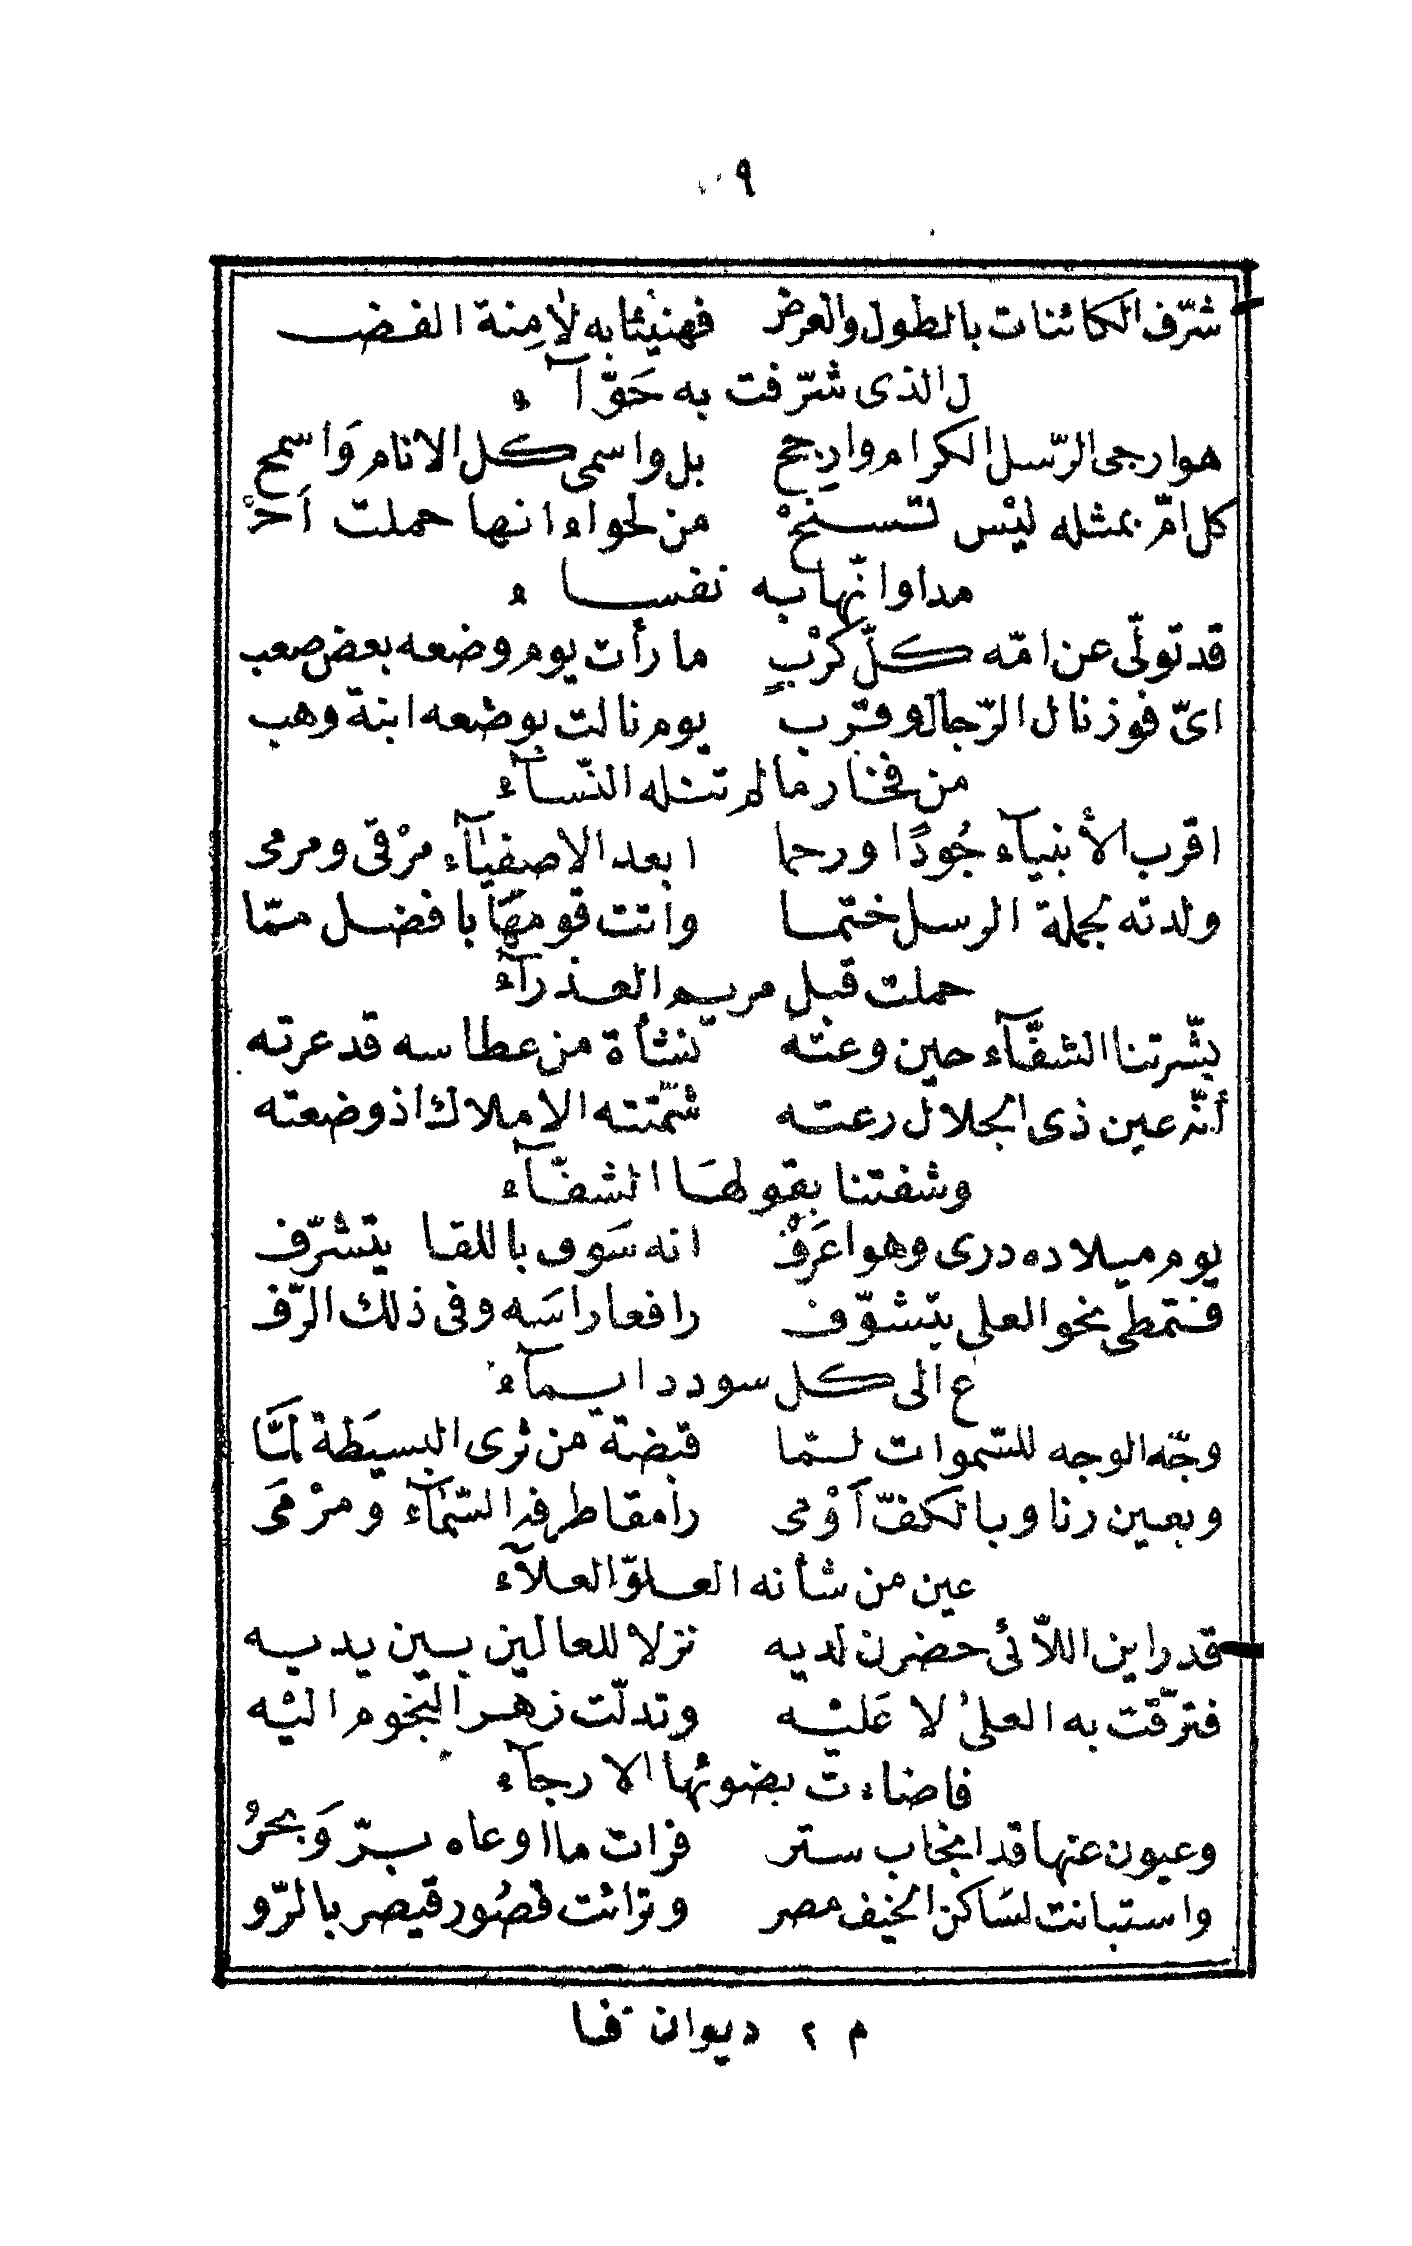 ٩
شرّف الكائنات بالطول والعرض فهنيئا به لآمنة الفضـ
ل الذى شرّفت به حوّآء
هو ارجى الرّسل الكرام وارجح بل واسمى كل الانام وَاسمح
كل امّ بمثله ليْس تسنحْ من لحواء انها حملت اَحْـ
مد او انّها به نفساء
قد تولّى عن امّه كلّ كرْبٍ ما رأت يوم وضعه بعض صعب
اىّ فوز نال الرّجال وقرب يوم نالت بوضعه ابنة وهب
من فخار ما لم تنله النّسآء
اقرب الأنبيآء جُودًا ورحما ابعد الاصفيآء مرْقى ومرمى
ولدته بجملة الرسل ختما واتت قومهَا بافضل ممّا
حملت قبل مريم العذرآء
بشّرتنا الشفّآء حين وعته نشأة من عطاسه قد عرته
أنّه عين ذى الجلال رعته شمّتته الاملاك اذ وضعته
وشفتنا بقولهَا الشفّآء
يوم ميلاده درى وهو اعرَفْ انه سَوف باللقا يتشرّف
فتمطى نحو العلى يتشوّف رافعا راسَه وفى ذلك الرّفـ
ع الى كل سودد ايمآء
وجّه الوجه للسّموات لمّا قبضة من ثرى البسيَطة لمَّا
وبعين رنا وبالكفّ اَوْمى رامقا طرفه السّمآء ومرْمَى
عين من شأنه العلوّ العلآء
قد راين اللّائى حضرن لديه نزلا للعالمين بين يديه
فترّقت به العلىُ لا عَليْه وتدلّت زهر النجوم اليْه
فاضاءت بضوئها الارجآء
وعيون عنها قد انجاب ستر فرات ما اوعاه برّ وَبحرُ
واستبانت لسَاكن الخيف مصر وترائت قصُور قيصر بالرّو
م ٢ ديوان فا